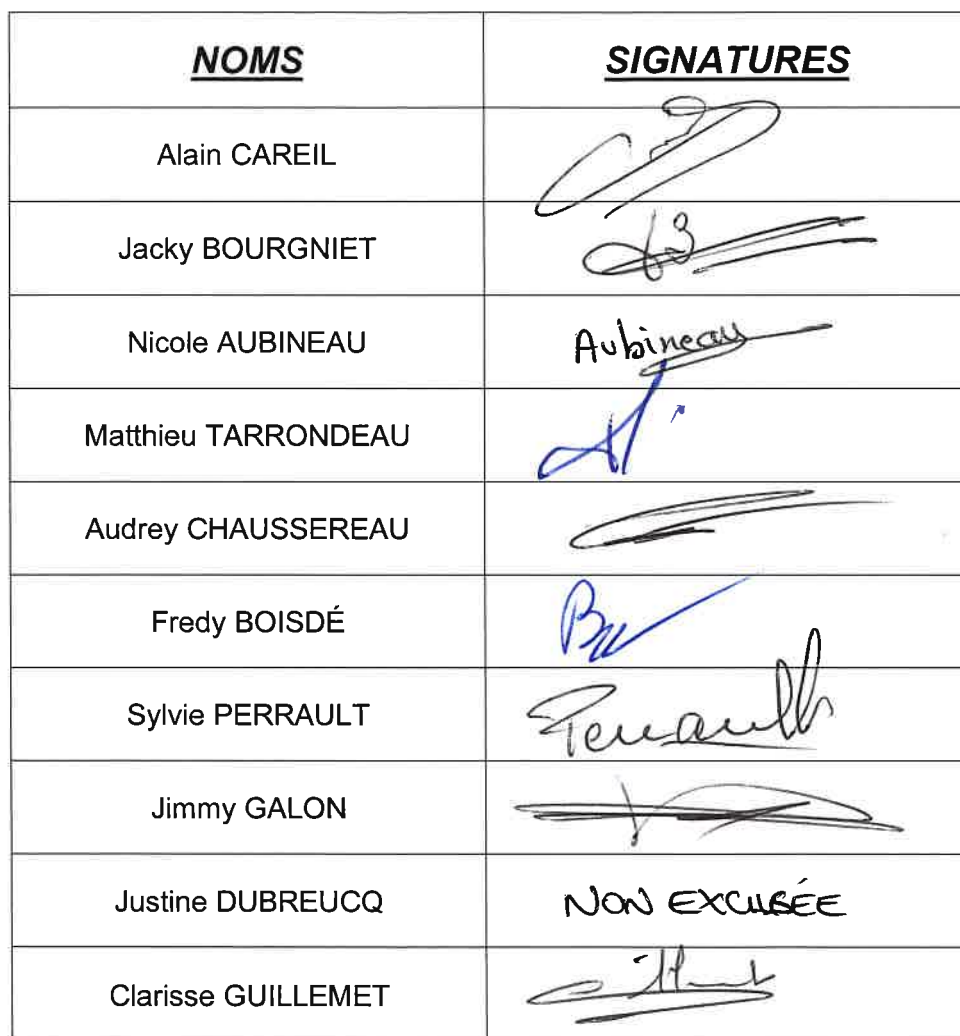 NOMS SIGNATURES
Alain CAREIL
Jacky BOURGNIET
Nicole AUBINEAU Aubineau
Matthieu TARRONDEAU
Audrey CHAUSSEREAU
Fredy BOISDÉ
Sylvie PERRAULT Perrault
Jimmy GALON
Justine DUBREUCQ NON EXCUSÉE
Clarisse GUILLEMET